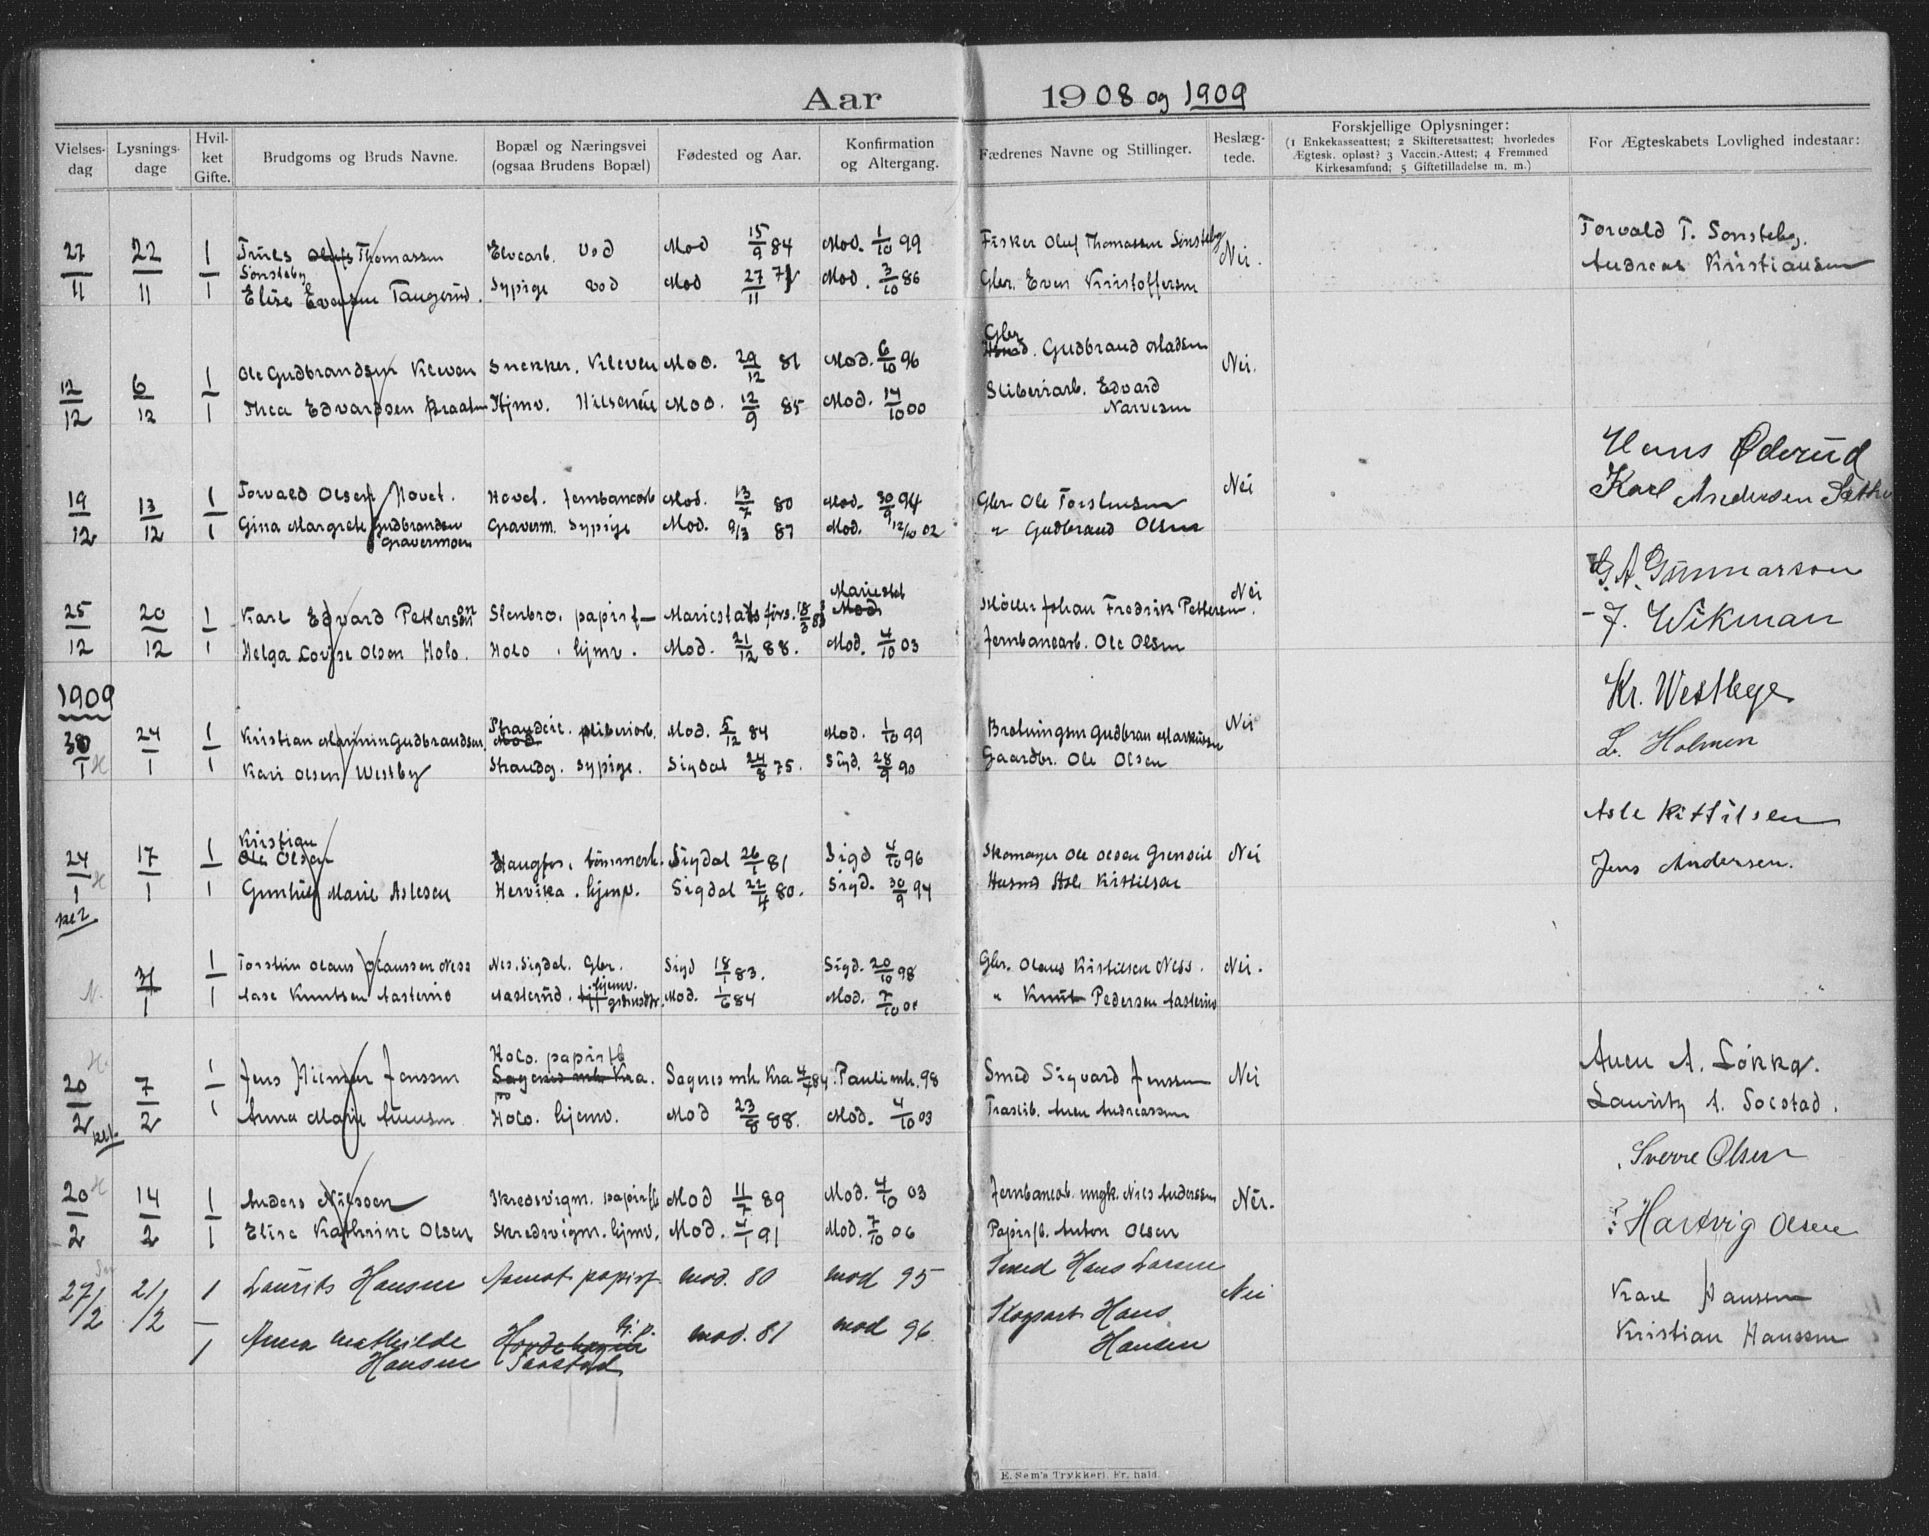 Aar 1908 og 1909
Vielses-dag
Lysnings-dage
Hvil-ket Gifte.
Brudgoms og Bruds Navne.
Bopæl og Næringsvei (ogsaa Brudens Bopæl)
Fødested og Aar.
Konfirmation og Altergang.
Fædrenes Navne og Stillinger.
Beslæg-tede.
Forskjellige Oplysninger:
(1 Enkekasseattest; 2 Skifteretsattest; hvorledes
Ægtesk. opløst? 3 Vaccin.-Attest; 4 Fremmed
Kirkesamfund; 5 Giftetilladelse m. m.)
For Ægteskabets Lovlighed indestaar:
27/11 22/11 1 Truls Thomassen Elvearb. Vod Mod 15/9 84 Mod. 1/10 99 Fisker Oluf Thomassen Sønsteby Nei. Torvald T. Sønsteby.
Sønsteby
1 Elise Evensen Taugerud. Sypige Vod Mod 27/11 Mod. 3/10 86 Gbr. Even Kristoffersen Andreas Kristiansen
12/12 6/12 1 Ole Gudbrandsen Kleven Snekker. Kleven Mod. 29/12 81 Mod. 6/10 96 Gbr. Gudbrand Madsen Nei.
1 Thea Edvardsen Braaten Hjmv. Mod. 12/9 85 Mod. 14/10 00 Sliberiarb. Edvard
Narvesen
19/12 13/12 1 Torvald Olsen Hovet. Hovet. Jernbanearb Mod. 13/7 80 Mod. 30/9 94 Gbr Ole Torstensen Nei Hans Øderud
1 Gina Margrete Gudbrandsen Graverm. Sypige Mod. 9/3 87 Mod. 12/10 02 " Gudbrand Olsen Karl Andersen
Gravermoen
25/12 20/12 1 Karl Edvard Petterson Stenbro. papirf Mariestads førs. 18/3 Mariestad Møller Johan Fredrik Pettersen Nei G. A. Gunnarson
1 Helga Lovise Olsen Holo. Holo. hjmv. Mod. 21/12 88. Mod. 4/10 03 Jernbanearb. Ole Olsen J. Wikman
1909
30/1 24/1 1 Kristian Gudbrandsen Strandeie. sliberiarb. Mod. 5/12 84 Mod. 1/10 99 Nei Kr. Westbye
1 Kari Olsen Westby Strandg. sypige. Sigdal 24/8 75. Sigd. 28/9 90 Gaardbr. Ole Olsen L. Holmen
24/1 17/1 1 Kristian Olsen Haugfos. tømmerh. Sigdal 26/1 81 Sigd 4/10 96 Skomager Ole Olsen Grenseie Nei Asle Kittilsen
1 Gunhild Marie Aslesen Hervika. hjemv. Sigdal 22/4 80. Sigd. 30/9 94 Husmd Asle Kittilsen Jens Andersen.
31/1 1 Torstein Olaus Olaussen Ness Nes. Sigdal. Gbr. Sigd 18/1 83. Sigd. 20/10 98 Gbr. Olaus Kittilsen Ness. Nei.
1 Aase Knutsen Aasterud Aasterud. hjemv. Mod. 1/6 84 Mod. 7/10 " Knut Pedersen Aasterud
20/2 7/2 1 Jens Hilmar Jenssen Holo. papirfb Sagenes mh. Kra. 4/7 84 Pauli mh. 98 Smed Sigvard Jenssen Nei Auen A. Løkka.
1 Anna Marie Auensen Holo. hjemv. Mod 23/8 88. Mod. 4/10 03 Traslib. Auen Andreassen Lauritz A. Solstad.
20/2 14/2 1 Anders Nilssen Skredsvigm. papirfb Mod 11/7 89 Mod. 4/10 03 Jernbanearb. ungk. Nils Anderssen Nei. Sverre Olsen
1 Elise Kathrine Olsen Skredsvigm. hjmv. Mod. 4/1 91 Mod. 7/10 06 Papirfb. Anton Olsen Hartvig Olsen
27/2 21/2 1 Laurits Hansen Aamot papirf Mod. 80 Mod 95 Smed Hans Larsen Nei Karl Hansen
1 Anna Mathilde Mod. 81 Mod 96 Hans Kristian Hanssen
Hansen Hansen
E. Sem's Trykkeri. Fr. hald.